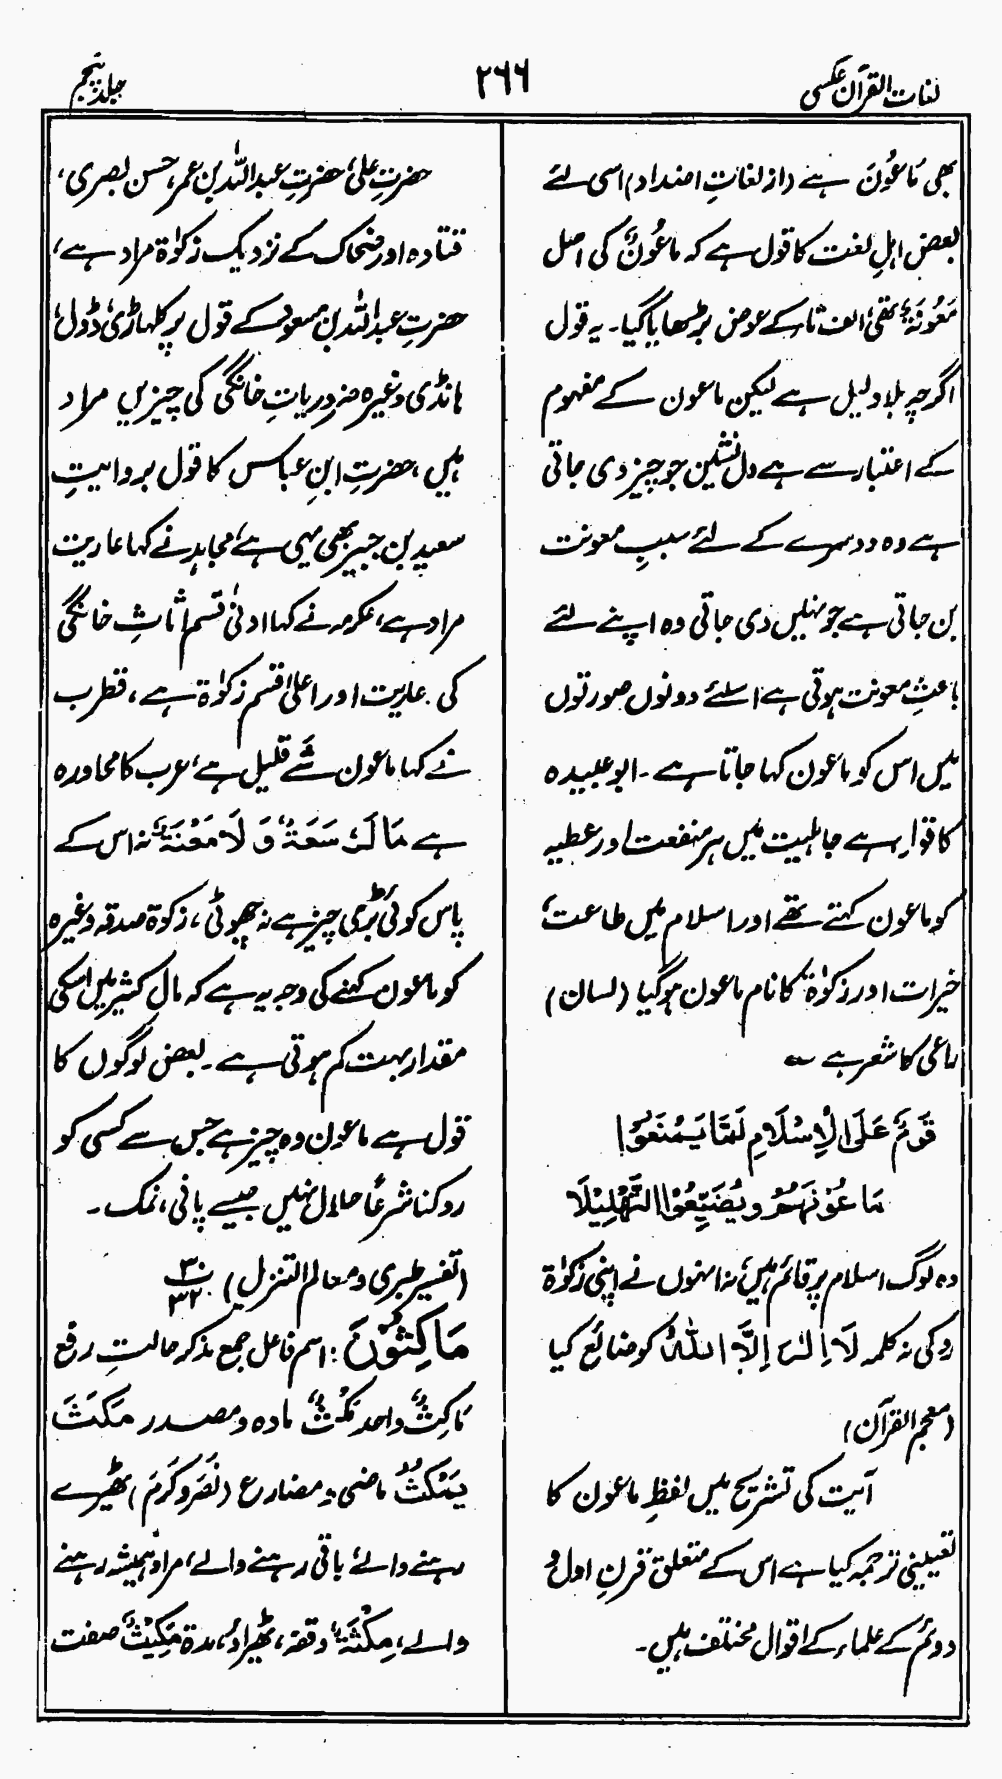 لغات القرآن عکسی
۲۶۶
جلد پنجم
بھی مَاعُوْنَ ہے (از لغاتِ اضداد) اسی لئے
بعض اہلِ لغت کا قول ہے کہ مَاعُوْنٌ کی اصل
مَعُوْنَةٌ تھی، الف تار کے عوض بڑھایا گیا۔ یہ قول
اگرچہ بلا دلیل ہے لیکن ماعون کے مفہوم
کے اعتبار سے ہے دل نشین جو چیز دی جاتی
ہے وہ دوسرے کے لئے سببِ معونت
بن جاتی ہے جو نہیں دی جاتی وہ اپنے لئے
باعثِ معونت ہوتی ہے اسلئے دونوں صورتوں
میں اس کو ماعون کہا جاتا ہے۔ ابو عبیدہ
کا قول ہے جاہلیت میں ہر منفعت اور عطیہ
کو ماعون کہتے تھے اور اسلام میں طاعت،
خیرات اور زکوٰۃ کا نام ماعون ہوگیا (لسان)
راعی کا شعر ہے ؎
قَوْمٌ عَلَى الْاِسْلَامِ لَمَّا يَمْنَعُوْا
مَاعُوْنَهُمْ وَيُضَيِّعُوْا التَّهْلِيْلَا
وہ لوگ اسلام پر قائم ہیں، نہ انہوں نے اپنی زکوٰۃ
روکی نہ کلمہ لَا اِلٰهَ اِلَّا اللّٰهُ کو ضائع کیا
(معجم القرآن)
آیت کی تشریح میں لفظِ ماعون کا
تعیینی ترجمہ کیا ہے اس کے متعلق قرنِ اول و
دوئم کے علماء کے اقوال مختلف ہیں۔
حضرتِ علی، حضرتِ عبداللہ بن عمر، حسن بصری،
قتادہ اور ضحاک کے نزدیک زکوٰۃ مراد ہے،
حضرتِ عبداللہ بن مسعود کے قول پر کلہاڑی، ڈول،
ہانڈی وغیرہ ضروریاتِ خانگی کی چیزیں مراد
ہیں، حضرتِ ابنِ عباس کا قول بروایتِ
سعید بن جبیر بھی یہی ہے، مجاہد نے کہا عاریت
مراد ہے، عکرمہ نے کہا ادنیٰ قسم اثاثِ خانگی
کی عاریت اور اعلیٰ قسم زکوٰۃ ہے، قطرب
نے کہا ماعون شَے قلیل ہے، عرب کا محاورہ
ہے مَا لَهٗ سَعَةٌ وَّلَا مَعْنَةٌ نہ اس کے
پاس کوئی بڑی چیز ہے نہ چھوٹی، زکوٰۃ صدقہ وغیرہ
کو ماعون کہنے کی وجہ یہ ہے کہ مال کثیر میں اسکی
مقدار بہت کم ہوتی ہے۔ بعض لوگوں کا
قول ہے ماعون وہ چیز ہے جس سے کسی کو
روکنا شرعًا حلال نہیں جیسے پانی، نمک۔
(تفسیر طبری و معالم التنزیل) ۳۰/۳۲
مَاكِثُوْنَ: اسم فاعل جمع مذکر حالتِ رفع
مَاكِثٌ واحد مَكْثٌ مادہ و مصدر مَكَثَ
يَمْكُثُ ماضی و مضارع (نَصَرَ وَكَرُمَ) ٹھیرے
رہنے والے، باقی رہنے والے، مراد ہمیشہ رہنے
والے، مِكْثَةٌ وقفہ، ٹھراؤ، مدۃ مَكِيْثٌ صفت